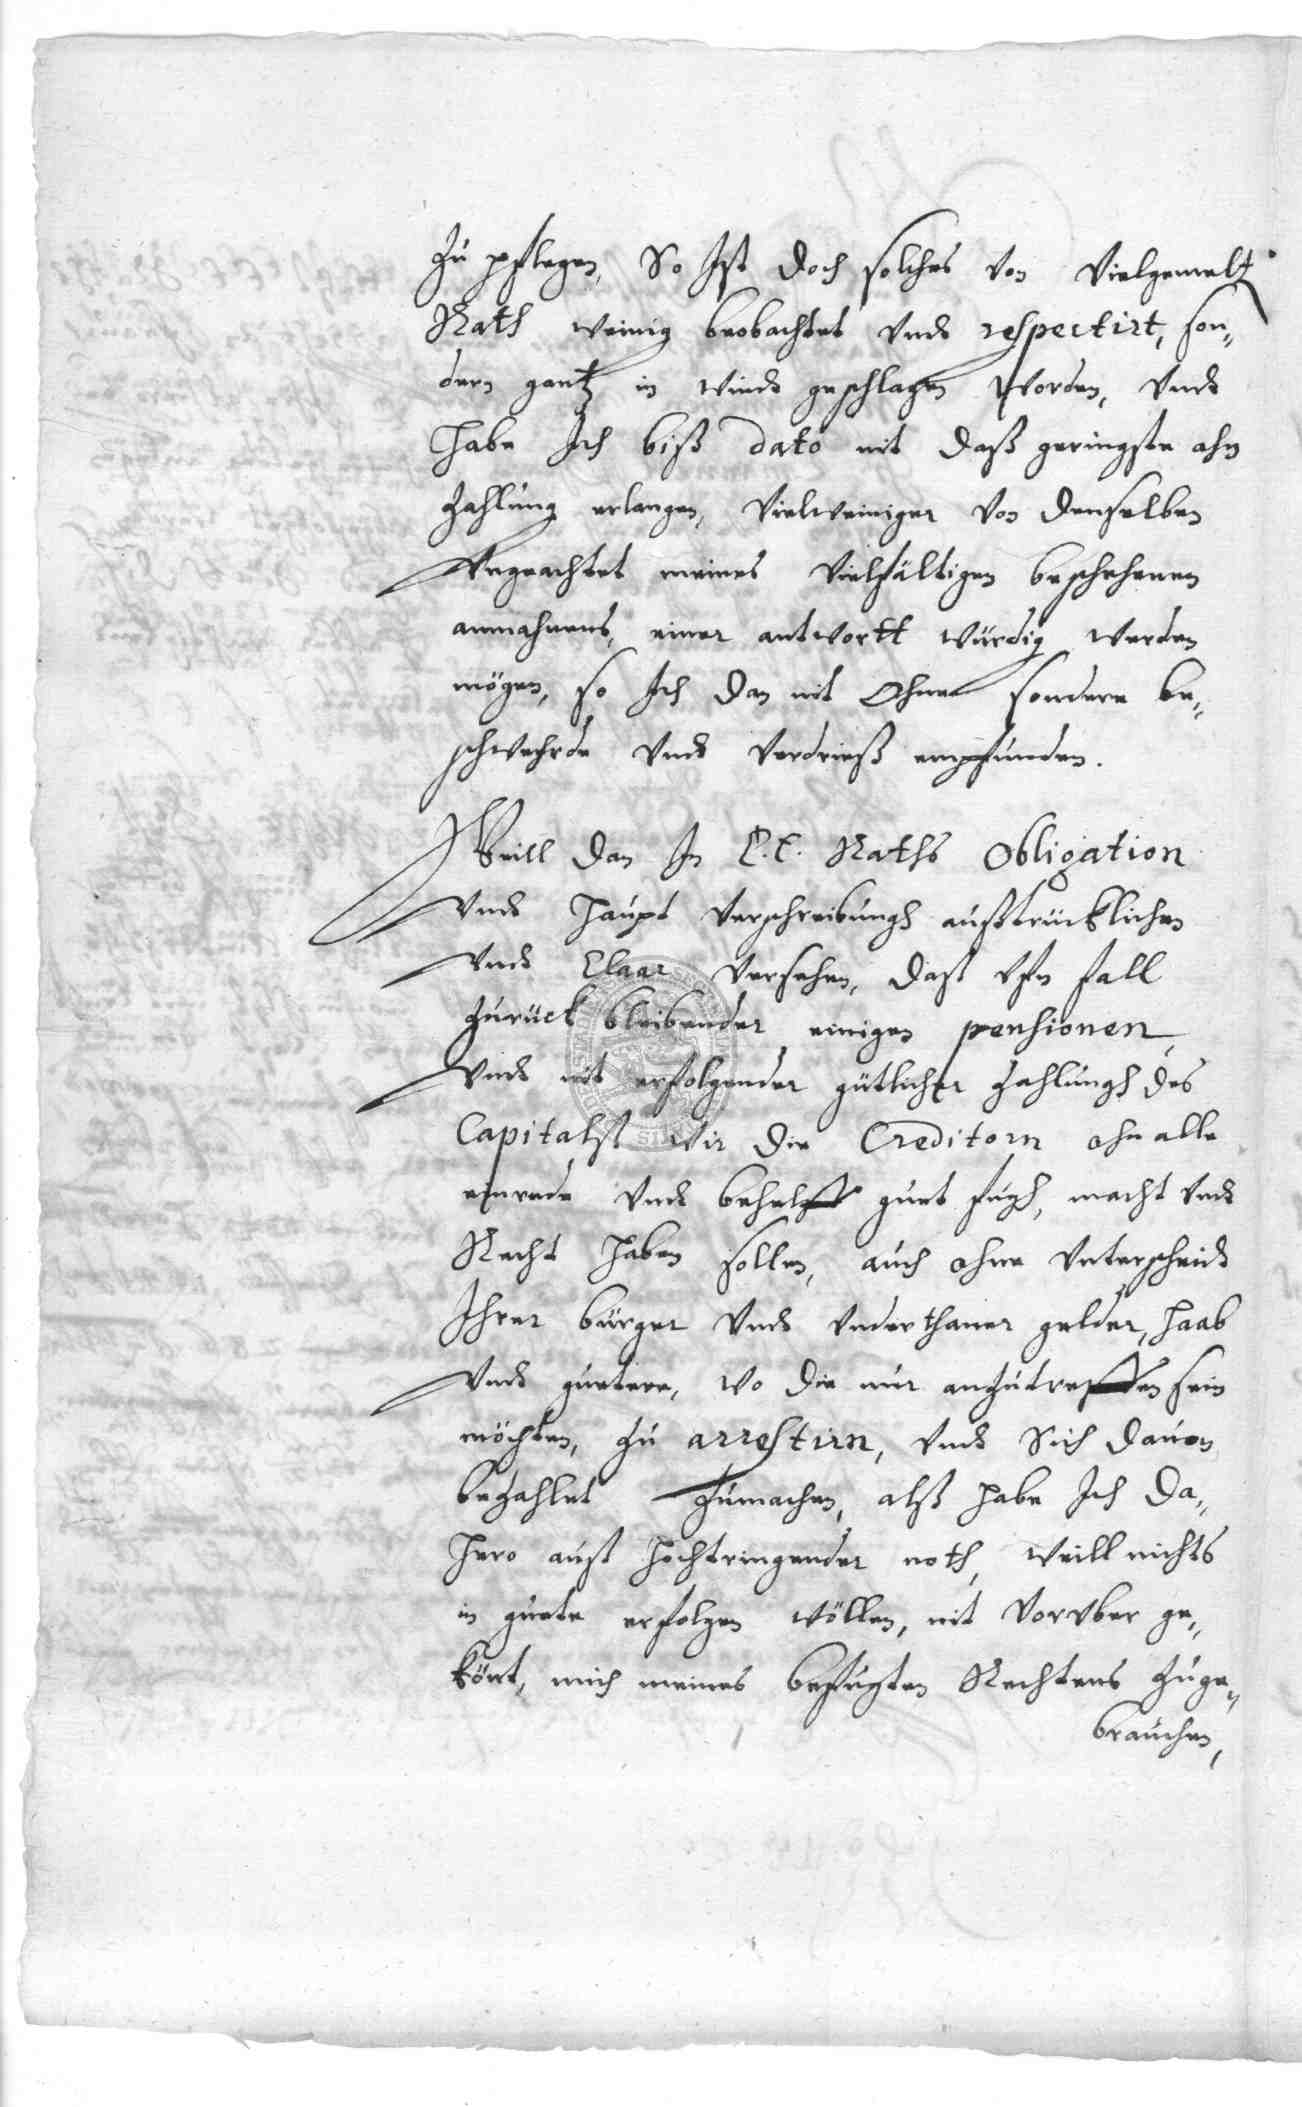 Zu pflegen, So Ist doch solches von Vielgemelt
Rath weinig beobachtet vnd respectirt, son„
dern gantz in windt geschlagen worden, vnd
habe Ich biß dato nit daß geringste ahn
Zahlung erlangen, vielweiniger von denselben
Vngeachtet meines vielfältigen beschehenen
anmahnens, einer antwortt würdig werden
mögen, so Ich dan nit Ohne sondere be„
schwehrde vnd verdrieß empfunden.
Weill dan In E. E. Raths Obligation
vnd haupt verschreibungh außtrücklichen
vnd Claar versehen, daß vfn fall
zurück bleibender einigen pensionen
vnd nit erfolgender gütlicher Zahlungh des
Capitalß wir die Creditorn ohn alle
einrede vnd behelff guet fugh, macht vnd
Recht haben sollen, auch ohne vnterscheidt
Ihrer bürger vnd vnderthaner gelder, haab
vnd guetere, wo die nur anzutreffen sein
möchten, zu arrestirn, vnd Sich dauon
bezahlet zumachen, alß habe Ich da„
hero auß hochtringender noth, weill nichts
in guete erfolgen wöllen, nit vorvber ge„
könt, mich meines befugten Rechtens zuge„
brauchen,